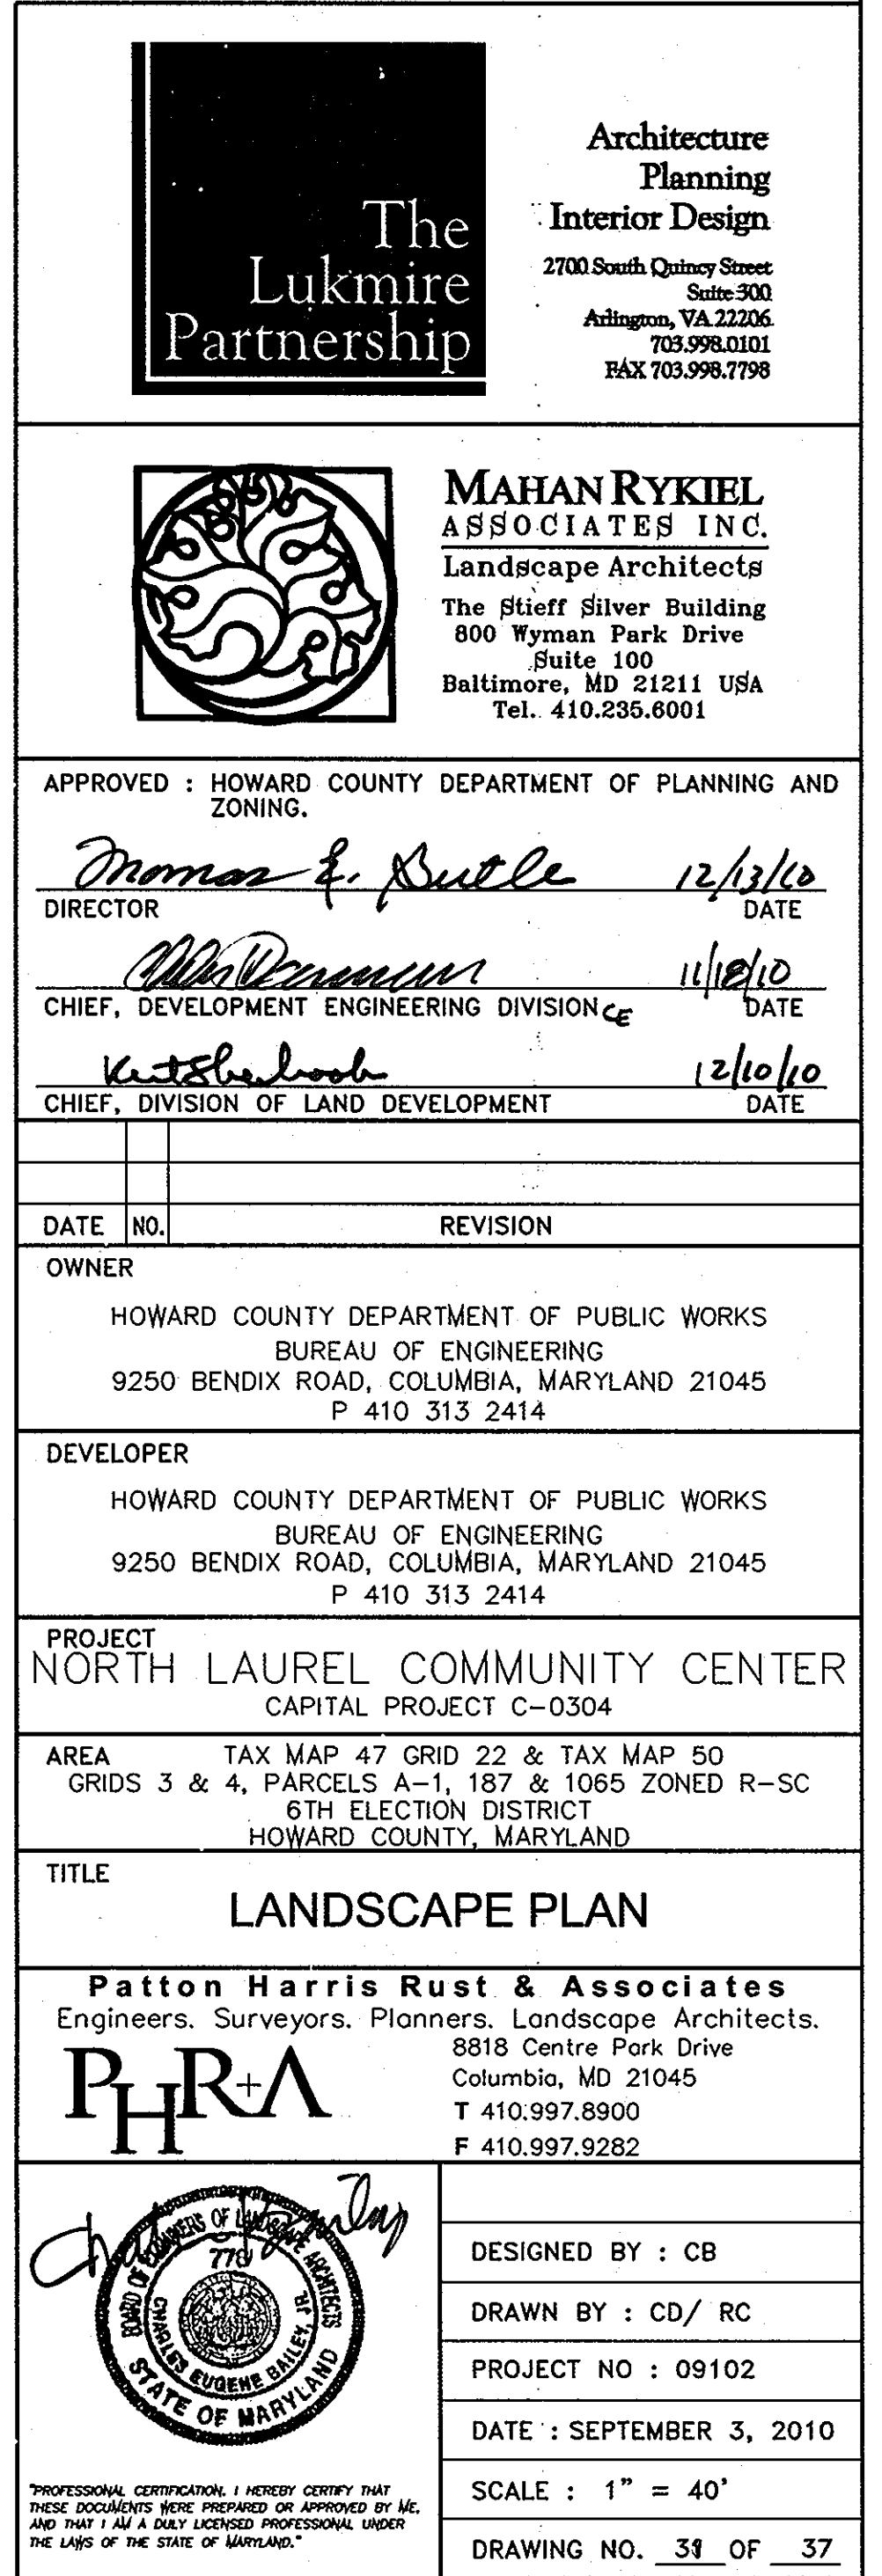 The
Lukmire
Partnership
Architecture
Planning
Interior Design
2700 South Quincy Street
Suite 300
Arlington, VA 22206
703.998.0101
FAX 703.998.7798
MAHAN RYKIEL
ASSOCIATES INC.
Landscape Architects
The Stieff Silver Building
800 Wyman Park Drive
Suite 100
Baltimore, MD 21211 USA
Tel. 410.235.6001
APPROVED : HOWARD COUNTY DEPARTMENT OF PLANNING AND
ZONING.
12/13/10
DIRECTOR DATE
11/18/10
CHIEF, DEVELOPMENT ENGINEERING DIVISION CE DATE
12/10/10
CHIEF, DIVISION OF LAND DEVELOPMENT DATE
DATE NO. REVISION
OWNER
HOWARD COUNTY DEPARTMENT OF PUBLIC WORKS
BUREAU OF ENGINEERING
9250 BENDIX ROAD, COLUMBIA, MARYLAND 21045
P 410 313 2414
DEVELOPER
HOWARD COUNTY DEPARTMENT OF PUBLIC WORKS
BUREAU OF ENGINEERING
9250 BENDIX ROAD, COLUMBIA, MARYLAND 21045
P 410 313 2414
PROJECT
NORTH LAUREL COMMUNITY CENTER
CAPITAL PROJECT C-0304
AREA TAX MAP 47 GRID 22 & TAX MAP 50
GRIDS 3 & 4, PARCELS A-1, 187 & 1065 ZONED R-SC
6TH ELECTION DISTRICT
HOWARD COUNTY, MARYLAND
TITLE
LANDSCAPE PLAN
Patton Harris Rust & Associates
Engineers. Surveyors. Planners. Landscape Architects.
PHR+A
8818 Centre Park Drive
Columbia, MD 21045
T 410.997.8900
F 410.997.9282
BOARD OF EXAMINERS OF LANDSCAPE ARCHITECTS
778
CHARLES EUGENE BAILEY, JR.
STATE OF MARYLAND
"PROFESSIONAL CERTIFICATION. I HEREBY CERTIFY THAT
THESE DOCUMENTS WERE PREPARED OR APPROVED BY ME,
AND THAT I AM A DULY LICENSED PROFESSIONAL UNDER
THE LAWS OF THE STATE OF MARYLAND."
DESIGNED BY : CB
DRAWN BY : CD/ RC
PROJECT NO : 09102
DATE : SEPTEMBER 3, 2010
SCALE : 1" = 40'
DRAWING NO. OF 37